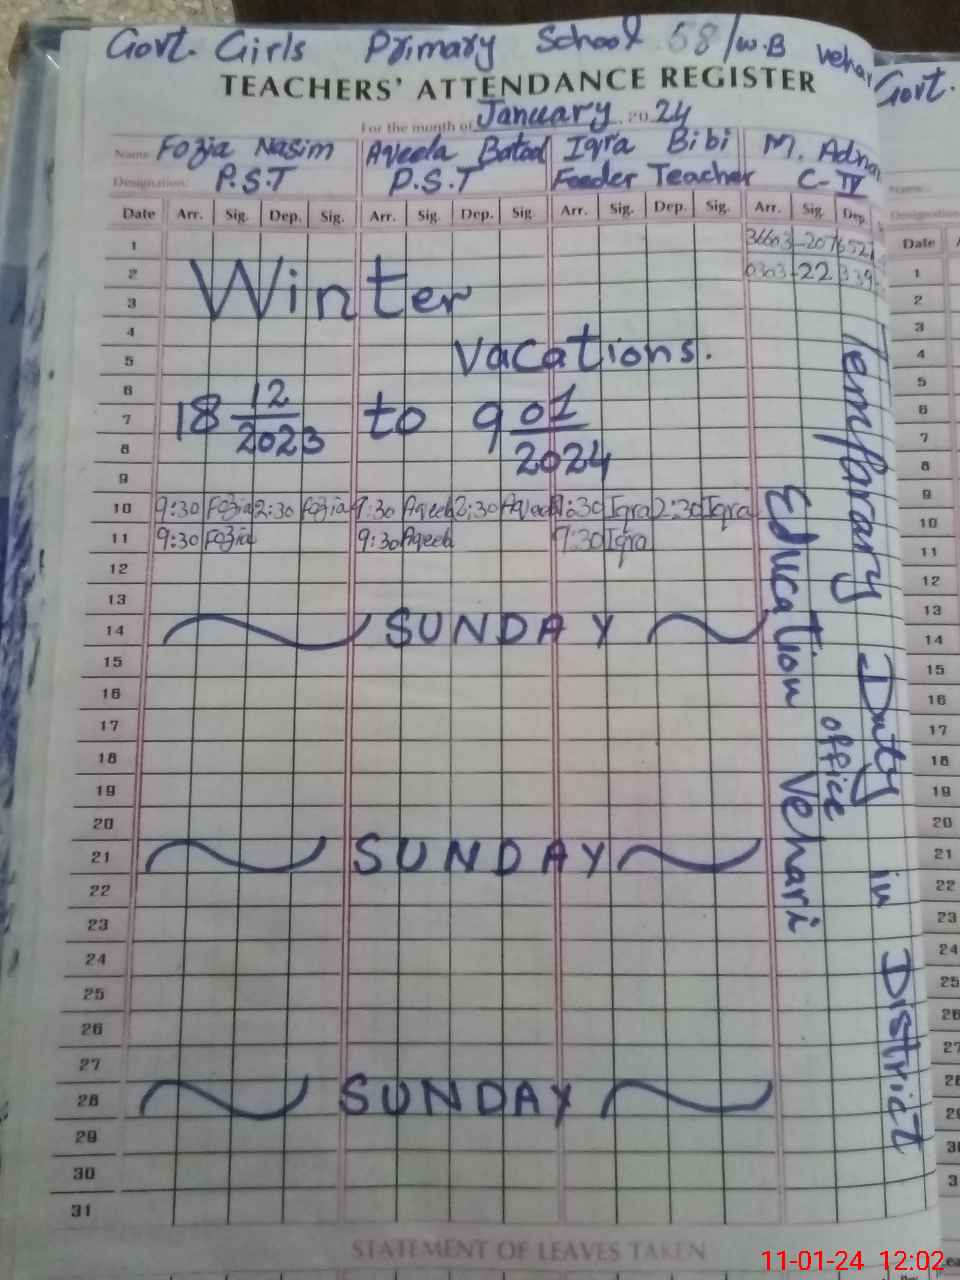 Govt. Girls Primary School 58/W.B Vehari
TEACHERS' ATTENDANCE REGISTER
For the month of January 2024
Name Fozia Nasim Aqeela Batool Iqra Bibi M. Adnan
Designation: P.S.T P.S.T Feeder Teacher C-IV
Date Arr. Sig. Dep. Sig. Arr. Sig. Dep. Sig Arr. Sig. Dep. Sig. Arr. Sig. Dep.
1
2
3
Winter
4
5
Vacations.
6
7
8
18 12/2023 to 9 01/2024
9
10 9:30 Fozia 2:30 Fozia 9:30 Aqeela 2:30 Aqeela 9:30 Iqra 2:30 Iqra
11 9:30 Fozia 9:30 Aqeela 9:30 Iqra
12
13
14 SUNDAY
15
16
17
18
19
20
21 SUNDAY
22
23
24
25
26
27
28 SUNDAY
29
30
31
Temparary Duty in District
Education office Vehari
STATEMENT OF LEAVES TAKEN
Govt.
Name:
Designation
Date
1
2
3
4
5
6
7
8
9
10
11
12
13
14
15
16
17
18
19
20
21
22
23
24
25
26
27
28
11-01-24 12:02